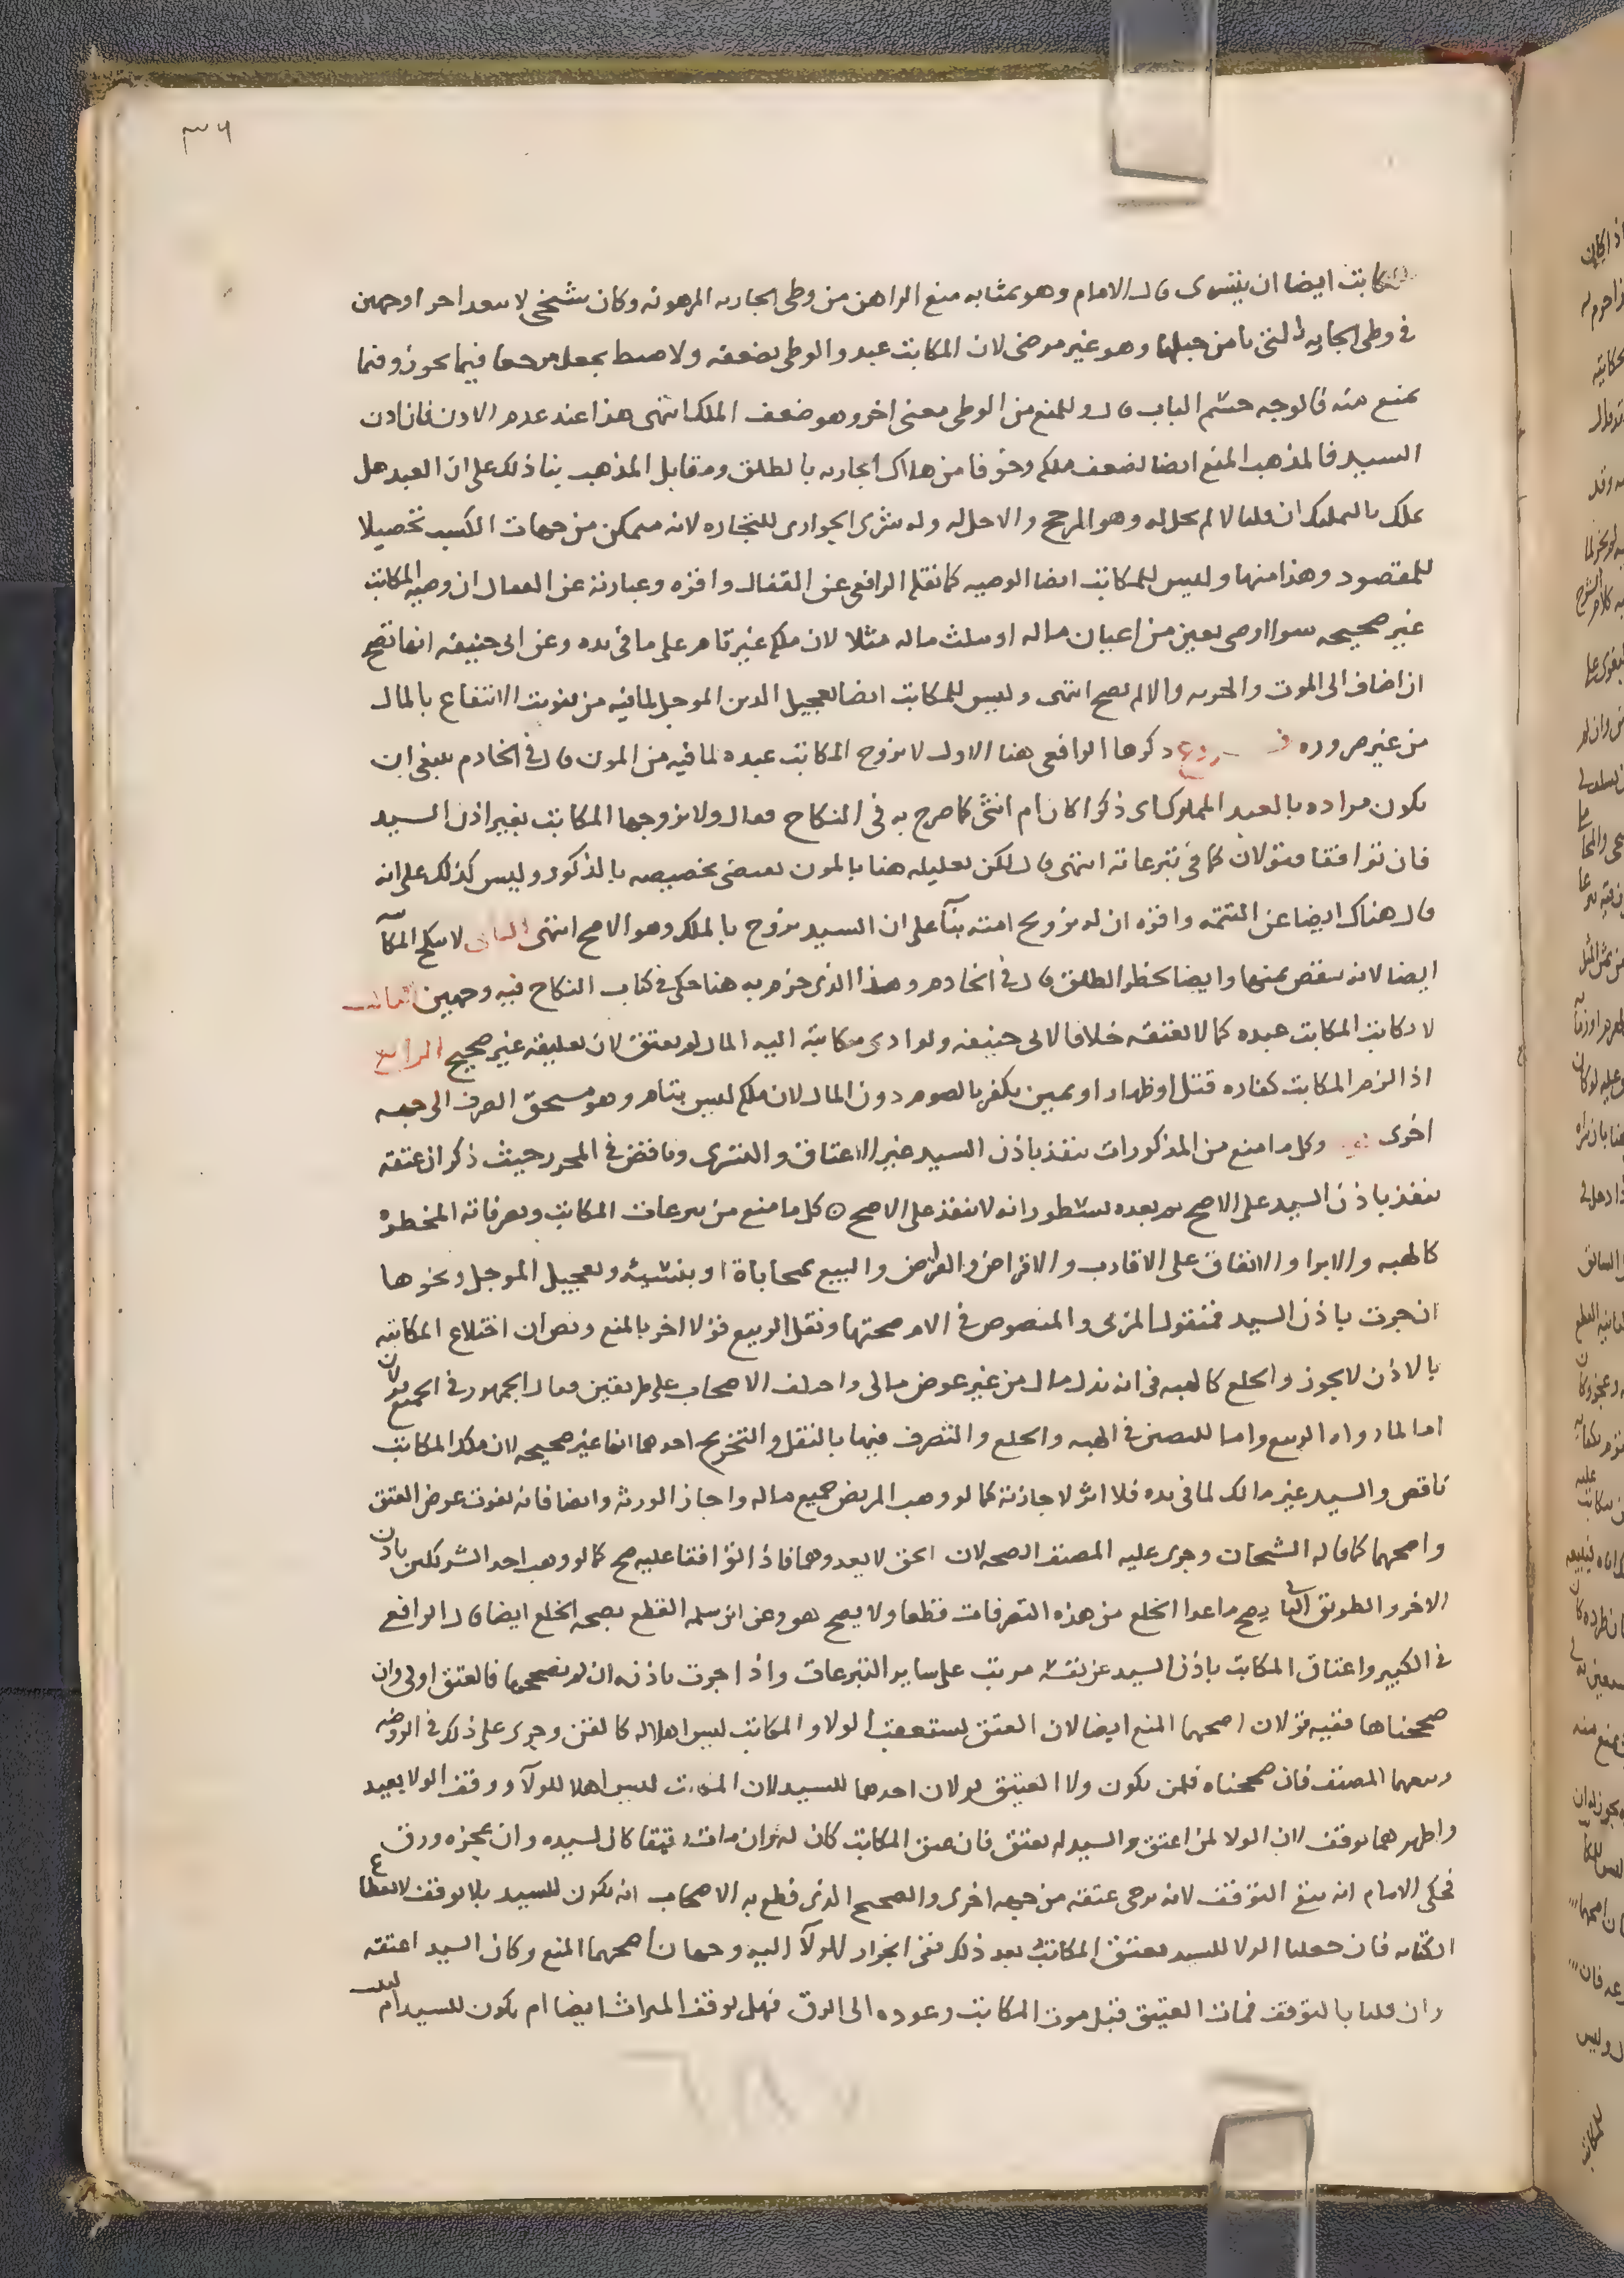 ٣٦
للمكاتب ايضا ان يتسرى قال الامام وهو بمثابه منع الراهن من وطى الجاريه المرهونه وكان شيخى لا يبعد اجرا وجهين
فى وطى الجاريه التى نامن حبلها وهو غير مرضى لان المكاتب عبد والوطى يضعفه ولا ضبط يجعل مرجعا فيما يجوز وفيما
يمنع منه فالوجه حسم الباب قال وللمنع من الوطى معنى اخر وهو ضعف الملك انتهى هذا عند عدم الاذن فان اذن
السيد فالمذهب المنع ايضا لضعف ملكه وخوفا من هلاك الجاريه بالطلق ومقابل المذهب بنا ذلك على ان العبد هل
يملك بالتمليك ان قلنا لا لم يحل له وهو المرجح والا حل له وله شرى الجوارى للتجاره لانه متمكن من جهات الكسب تحصيلا
للمقصود وهذا منها وليس للمكاتب ايضا الوصيه كما نقله الرافعى عن القفال واقره وعبارته عن القفال ان وصيه المكاتب
غير صحيحه سوا اوصى بعين من اعيان ماله او بثلث ماله مثلا لان ملكه غير تام على ما فى يده وعن ابى حنيفه انها تصح
ان اضاف الى الموت والحريه والا لم تصح انتهى وليس للمكاتب ايضا تعجيل الدين الموجل لما فيه من تفويت الانتفاع بالمال
من غير ضروره فروع ذكرها الرافعى هنا الاول لا يزوج المكاتب عبده لما فيه من المون قال فى الخادم ينبغى ان
يكون مراده بالعبد المملوك اى ذكرا كان ام انثى كما صرح به فى النكاح فقال ولا يزوجها المكاتب بغير اذن السيد
فان توافقا فقولان كما فى تبرعاته انتهى قال لكن تعليله هنا بالمون يقتضى تخصيصه بالذكور وليس كذلك على انه
قال هناك ايضا عن التتمه واقره ان له تزويج امته بنآ على ان السيد يزوج بالملك وهو الاصح انتهى الثانى لا ينكح المكاتب
ايضا لانه ينقص بمنها وايضا لخطر الطلق قال فى الخادم وهذا الذى جزم به هنا حكى فى كتاب النكاح فيه وجهين الثالث
لا يكاتب المكاتب عبده كما لا يعتقه خلافا لابى حنيفه ولو ادى مكاتبه اليه المال لم يعتق لان تعليقه غير صحيح الرابع
اذا لزم المكاتب كفاره قتل او ظهار او يمين يكفر بالصوم دون المال لان ملكه ليس بتام وهو مستحق الصرف الى جهه
اخرى وكل ما منع من المذكورات ينفذ باذن السيد غير الاعتاق والتسرى وناقض فى المحرر حيث ذكر ان عتقه
ينفذ باذن السيد على الاصح ثم بعده بسطور انه لا ينفذ على الاصح ٥ كل ما منع من تبرعات المكاتب وتصرفاته المخطره
كالهبه والابرا والانفاق على الاقارب والاقراض والقراض والبيع بمحاباة او بنسيئه وتعجيل الموجل ونحوها
ان جرت باذن السيد فمنقول المزنى والمنصوص فى الام صحتها ونقل الربيع قولا اخر بالمنع ونص ان اختلاع المكاتبه
بالاذن لا يجوز والخلع كالهبه فى انه بذل مال من غير عوض مالى واختلف الاصحاب على طريقين فقال الجمهور فى الجميع قولان
اما لما رواه الربيع واما للنصين فى الهبه والخلع والتصرف فيها بالنقل والتخريج احدهما انها غير صحيحه لان ملك المكاتب
ناقص والسيد غير مالك لما فى يده فلا اثر لاجازته كما لو وهب المريض جميع ماله واجاز الورثه وايضا فانه يفوت غرض العتق
واصحهما كما قاله الشيخان وجرى عليه المصنف الصحه لان الحق لا يعدوهما فاذا توافقا عليه صح كما لو وهب احد الشريكين باذن
الاخر والطريق الثانى يصح ما عدا الخلع من هذه التصرفات قطعا ولا يصح هو وعن ابن سلمه القطع بصحه الخلع ايضا قال الرافعى
فى الكبير واعتاق المكاتب باذن السيد عن نفسه مرتب على ساير التبرعات واذا جرت باذنه ان لم نصححها فالعتق اولى وان
صححناها ففيه قولان اصحهما المنع ايضا لان العتق يستعقب الولا والمكاتب ليس اهلا له كالقن وجرى على ذلك فى الروضه
وتبعهما المصنف فان صححناه فلمن يكون ولا العتيق قولان احدهما للسيد لان المكاتب ليس اهلا للولآ ووقف الولا بعيد
واظهرهما يوقف لان الولا لمن اعتق والسيد لم يعتق فان عتق المكاتب كان له وان مات رقيقا كان لسيده وان عجزه ورق
فحكى الامام انه يبقى التوقف لانه يرجى عتقه من جهه اخرى والصحيح الذى قطع به الاصحاب انه يكون للسيد بلا توقف لانقطاع
الكتابه فان جعلنا الولا للسيد فعتق المكاتب بعد ذلك ففى انجرار الولآ اليه وجهان اصحهما المنع وكان السيد اعتقه
وان قلنا بالتوقف فمات العتيق قبل موت المكاتب وعوده الى الرق فهل يوقف الميراث ايضا ام يكون للسيد ام لبيت